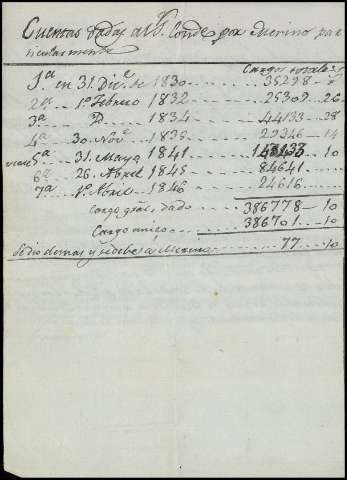 Cuentas dadas al Sr. Conde por Merino par
ticularmente
Cargos totales
1ª. en 31. Dicre. de 1830 35298
2ª. 1º Febrero 1832 25309 26
3ª D. 1834 44133 28
4ª 30. Novre. 1835 29346 14
5ª 31. Mayo 1841 10
6ª 26. Abril 1845 84641
7ª 1º. Abril 1846 24616
Cargo gral. dado 386778 10
Cargo 386701 10
Se dio demas y se debe a Merino 77 10